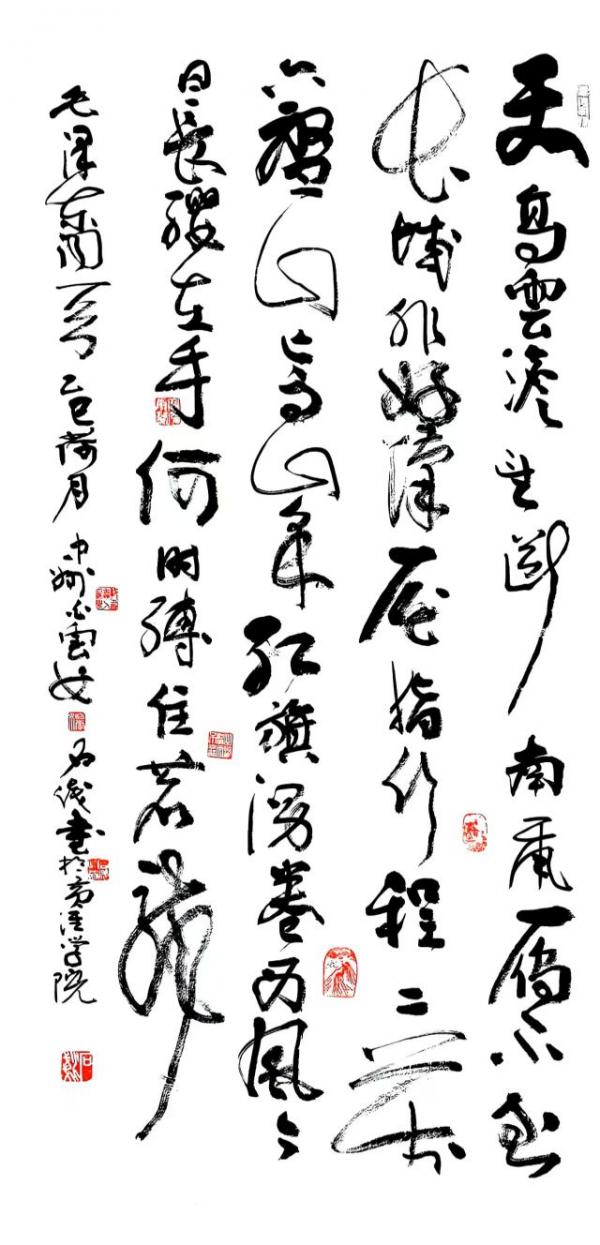 天高雲淡望断南飛雁不到
长城非好漢屈指行程二萬
六盤山上高峯紅旗漫卷西風今
日長纓在手何時縛住苍龍
毛澤东词一首乙巳荷月中州雲書於学院